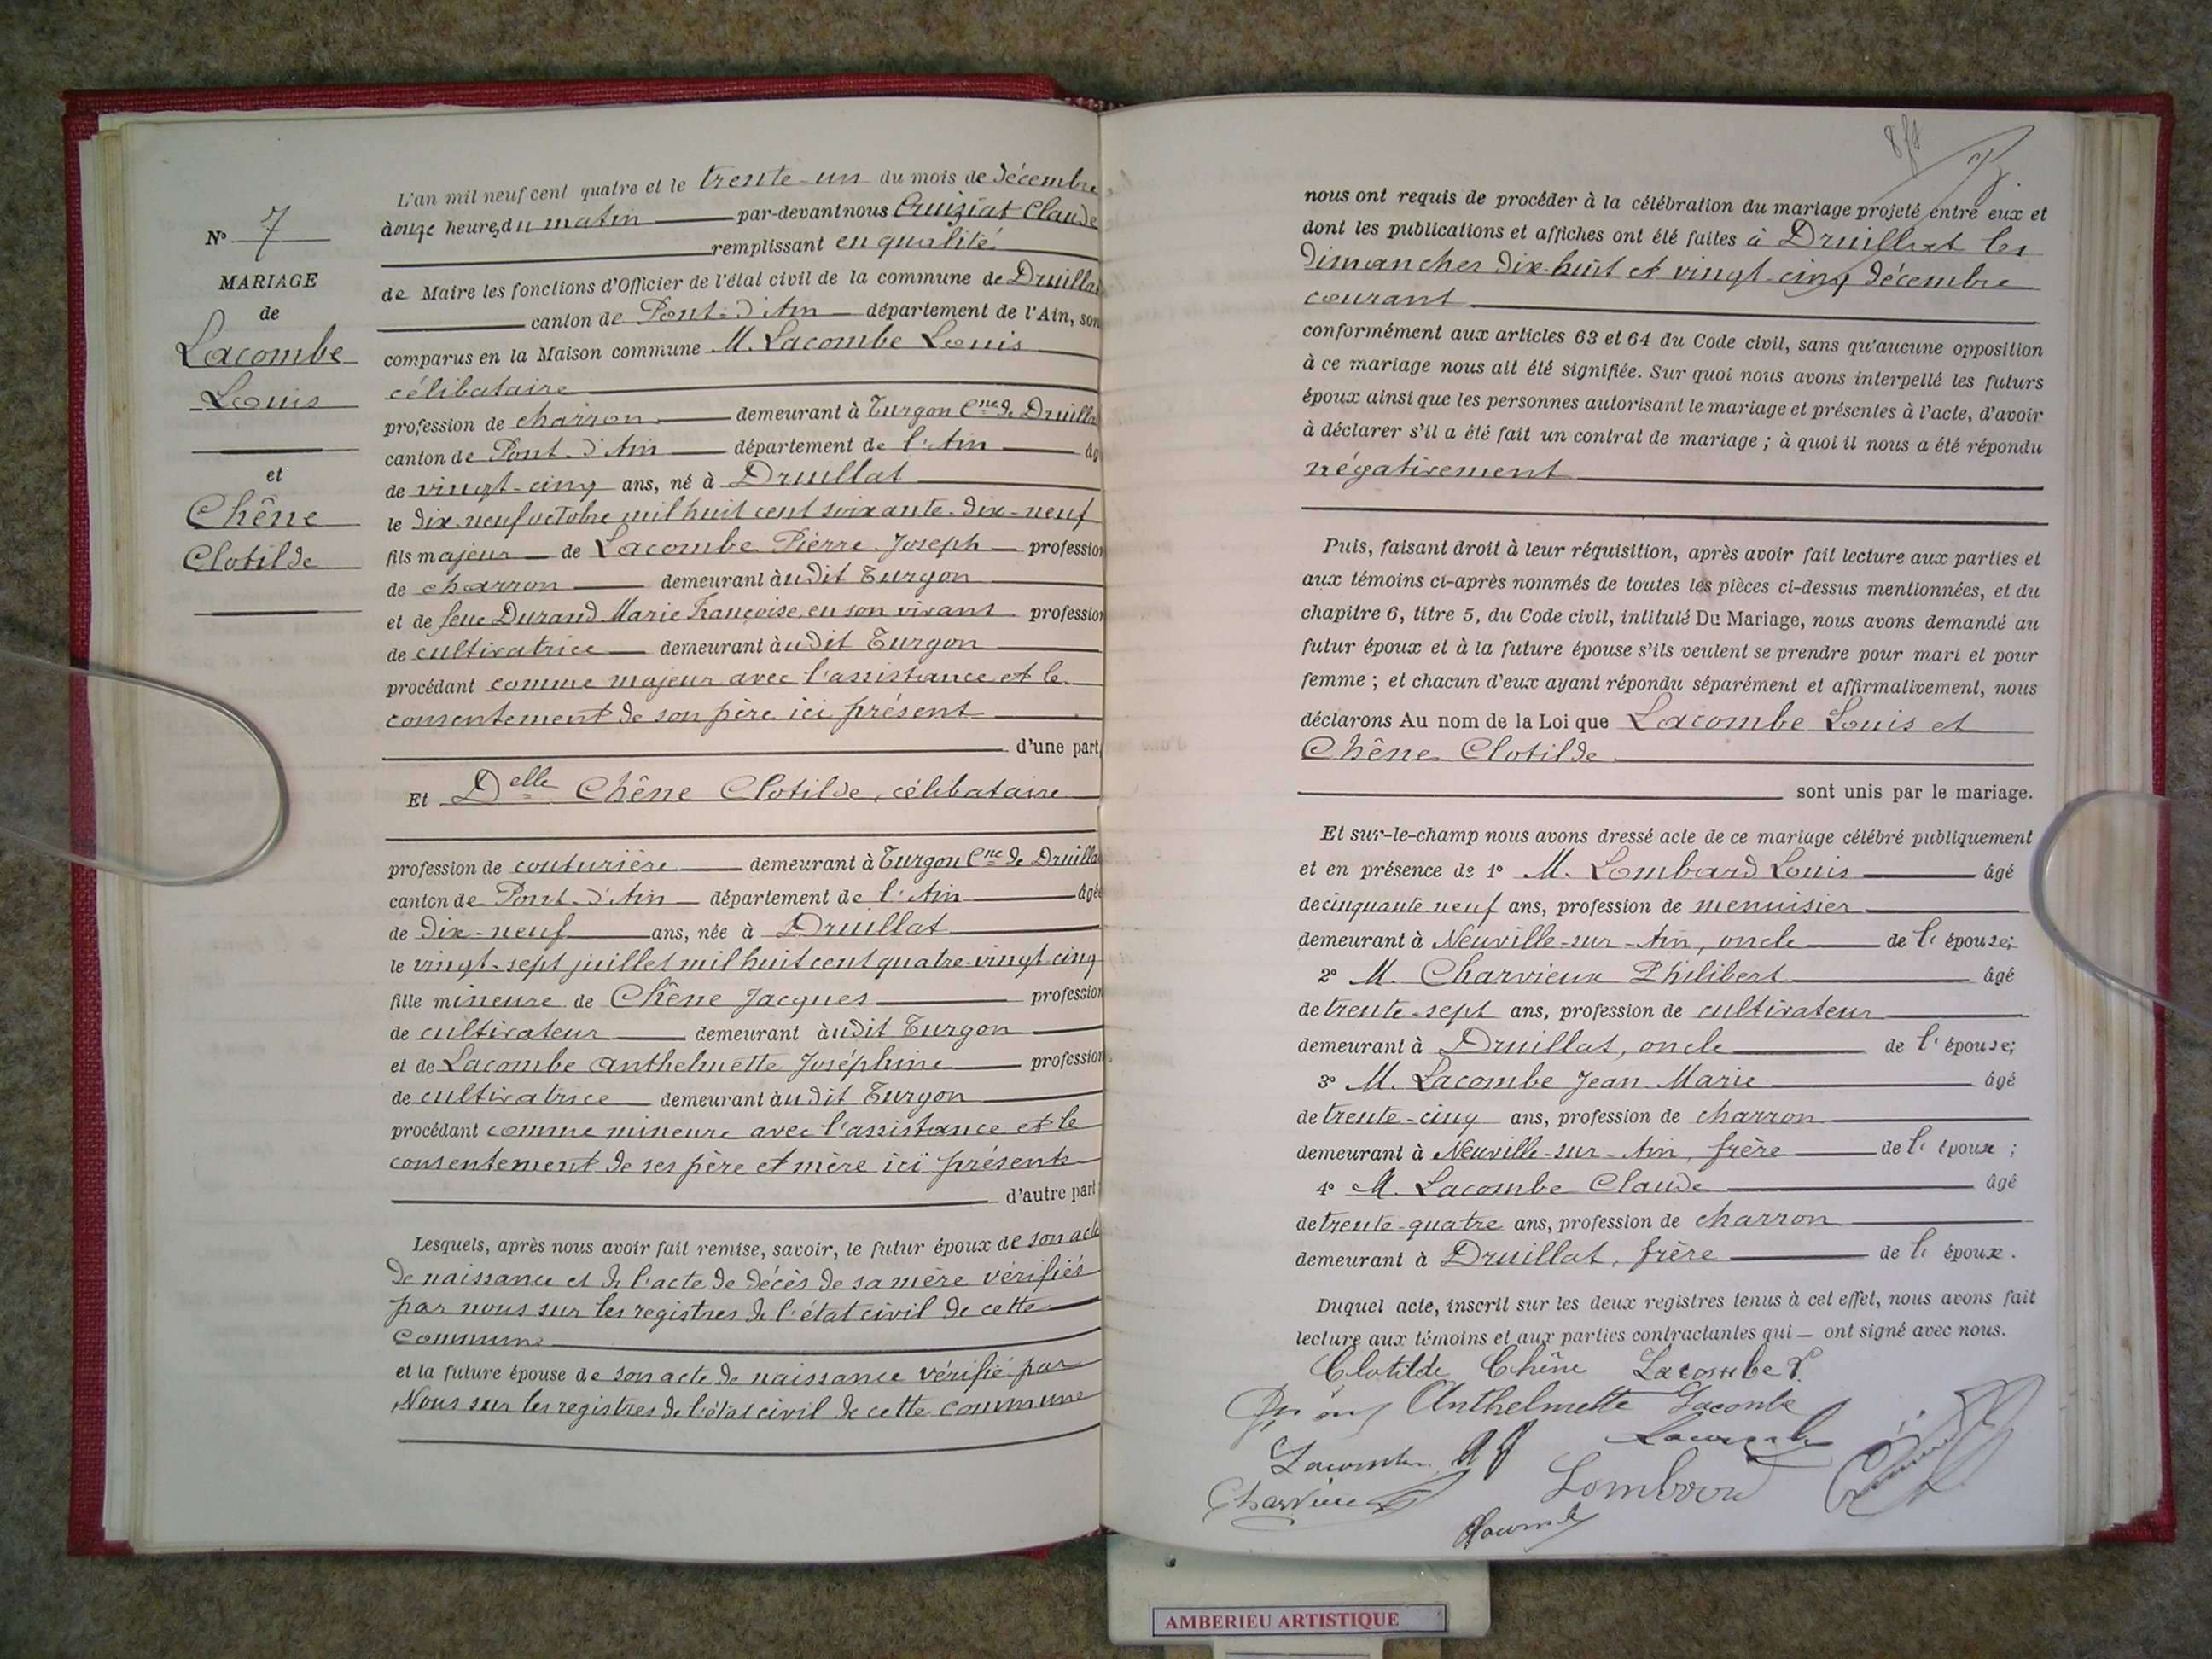 N° 7
MARIAGE
de
Lacombe
Louis
et
Chêne
Clotilde
L'an mil neuf cent quatre et le trente-un du mois de décembre
à onze heures du matin par-devant nous Cruiziat Claude
remplissant en qualité
de Maire les fonctions d'Officier de l'état civil de la commune de Druillat
canton de Pont-d'Ain département de l'Ain, son
comparus en la Maison commune M. Lacombe Louis
célibataire
profession de charron demeurant à Turgon Cne de Druillat
canton de Pont-d'Ain département de l'Ain âg
de vingt-cinq ans, né à Druillat
le dix-neuf octobre mil huit cent soixante-dix-neuf
fils majeur de Lacombe Pierre Joseph profession
de charron demeurant àudit Turgon
et de feue Durand Marie Françoise en son vivant profession
de cultivatrice demeurant àudit Turgon
procédant comme majeur avec l'assistance et le
consentement de son père ici présent
d'une part,
Et Delle Chêne Clotilde, célibataire
profession de couturière demeurant à Turgon Cne de Druillat
canton de Pont-d'Ain département de l'Ain âgée
de dix-neuf ans, née à Druillat
le vingt-sept juillet mil huit cent quatre-vingt cinq
fille mineure de Chêne Jacques profession
de cultivateur demeurant àudit Turgon
et de Lacombe Anthelmette Joséphine profession
de cultivatrice demeurant àudit Turgon
procédant comme mineure avec l'assistance et le
consentement de ses père et mère ici présents
d'autre part
Lesquels, après nous avoir fait remise, savoir, le futur époux de son acte
de naissance et de l'acte de décès de sa mère vérifiés
par nous sur les registres de l'état civil de cette
commune
et la future épouse de son acte de naissance vérifié par
Nous sur les registres de l'état civil de cette commune
nous ont requis de procéder à la célébration du mariage projeté entre eux et
dont les publications et affiches ont été faites à Druillat les
dimanches dix-huit et vingt-cinq décembre
courant
conformément aux articles 63 et 64 du Code civil, sans qu'aucune opposition
à ce mariage nous ait été signifiée. Sur quoi nous avons interpellé les futurs
époux ainsi que les personnes autorisant le mariage et présentes à l'acte, d'avoir
à déclarer s'il a été fait un contrat de mariage ; à quoi il nous a été répondu
négativement
Puis, faisant droit à leur réquisition, après avoir fait lecture aux parties et
aux témoins ci-après nommés de toutes les pièces ci-dessus mentionnées, et du
chapitre 6, titre 5, du Code civil, intitulé Du Mariage, nous avons demandé au
futur époux et à la future épouse s'ils veulent se prendre pour mari et pour
femme ; et chacun d'eux ayant répondu séparément et affirmativement, nous
déclarons Au nom de la Loi que Lacombe Louis et
Chêne Clotilde
sont unis par le mariage.
Et sur-le-champ nous avons dressé acte de ce mariage célébré publiquement
et en présence de 1° M. Lombard Louis âgé
de cinquante neuf ans, profession de menuisier
demeurant à Neuville-sur-Ain, oncle de l' épouse;
2° M. Charvieux Philibert âgé
de trente-sept ans, profession de cultivateur
demeurant à Druillat, oncle de l' épouse;
3° M. Lacombe Jean Marie âgé
de trente-cinq ans, profession de charron
demeurant à Neuville-sur-Ain, frère de l' époux ;
4° M. Lacombe Claude âgé
de trente-quatre ans, profession de charron
demeurant à Druillat, frère de l' époux.
Duquel acte, inscrit sur les deux registres tenus à cet effet, nous avons fait
lecture aux témoins et aux parties contractantes qui — ont signé avec nous.
Clotilde Chêne Lacombe L.
Anthelmette Lacombe
Lacombe
Lacombe
Lombard
Charvieux
Lacombe
AMBERIEU ARTISTIQUE